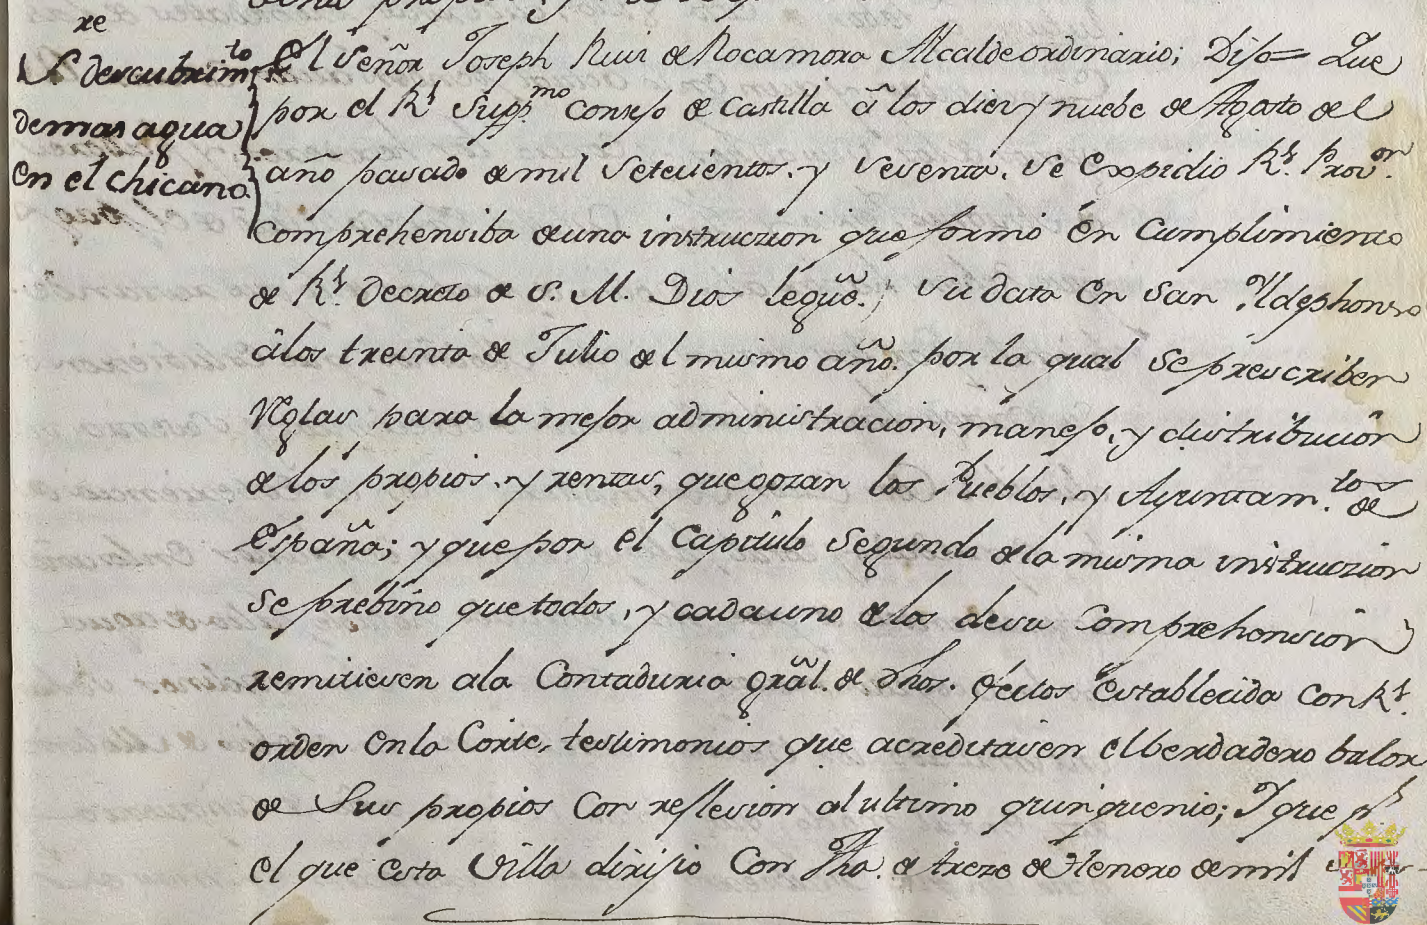 re
S.e descubrim.to
de mas agua
en el chicano
El señor Joseph Ruiz de Rocamora Alcalde ordinario; Dijo= Que
por el R.l Supp.mo consejo de Castilla â los diez y nuebe de Agosto de el
año pasado de mil setecientos. y sesenta. se expidio R.l Prov.on
comprehensiba de una instruczion que formó en cumplimiento
de R.l Decreto de S. M. Dios le gûe.; su data en San Yldephonso
â los treinta de Julio de el mismo año. por la qual se prescriben
Reglas para la mejor administracion, manejo, y distribucion
de los propios. y rentas, que gozan los Pueblos, y Ayuntam.tos de
España; y que por el Capitulo segundo de la misma instruczion
se prebino que todos, y cada uno de los de su comprehension
remitiesen a la Contaduria gräl. de dhos. efectos establecida con R.l
orden en la Corte, testimonios que acreditasen el berdadero balor
de sus propios con reflesion al ultimo quinquenio; Y que p.r
el que esta Villa dirijio con fha. de treze de Henero de mil